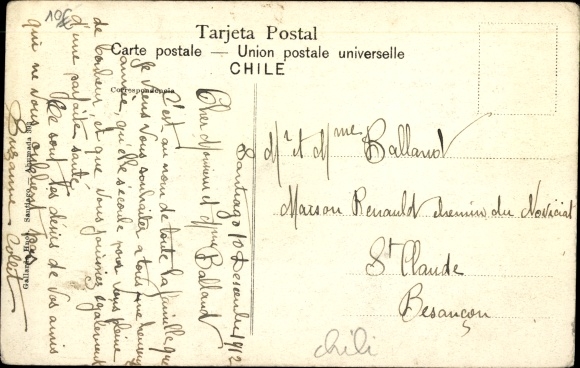 Tarjeta Postal
Carte postale — Union postale universelle
CHILE
Correspondencia
Santiago 10 Decembre 1912
Cher Monsieur et Mme Balland
C'est au nom de toute la famille que
je viens vous souhaiter à tous une heureuse
année, qu'elle s'écoule pour vous pleine
de bonheur, et que vous jouissiez également
d'une parfaite santé.
Ce sont les désirs de vos amis
qui ne vous oublient pas
Suzanne
Mr et Mme Balland
Maison Renauld chemin du Noviciat
St Claude
Besançon
chili